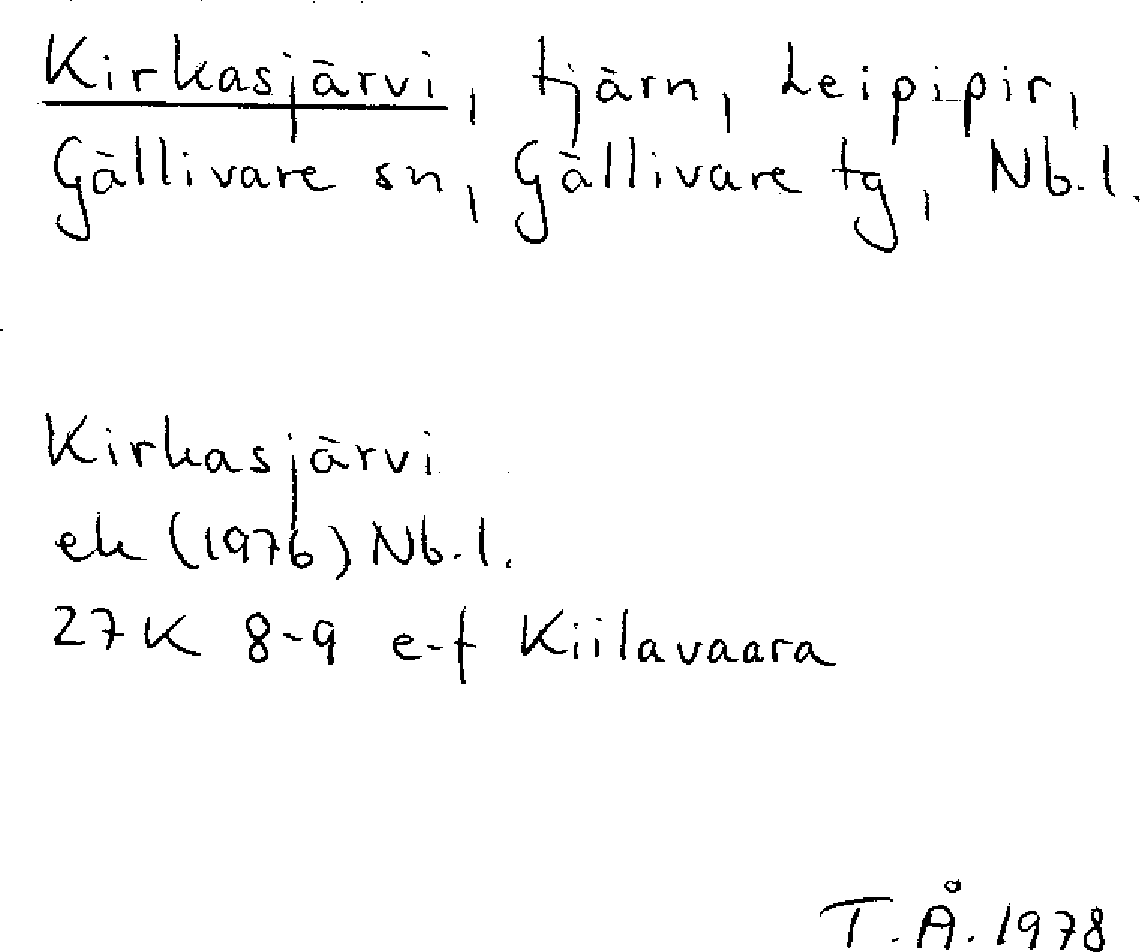 Kirkasjärvi, tjärn, Leipipir,
Gällivare sn, Gällivare tg, Nb.l.
Kirkasjärvi
ek (1976) Nb.l.
27K 8-9 e-f Kiilavaara
T.Å. 1978